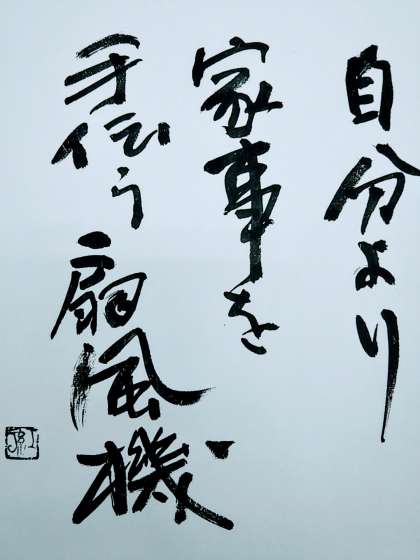 自分より
家事を
手伝う扇風機